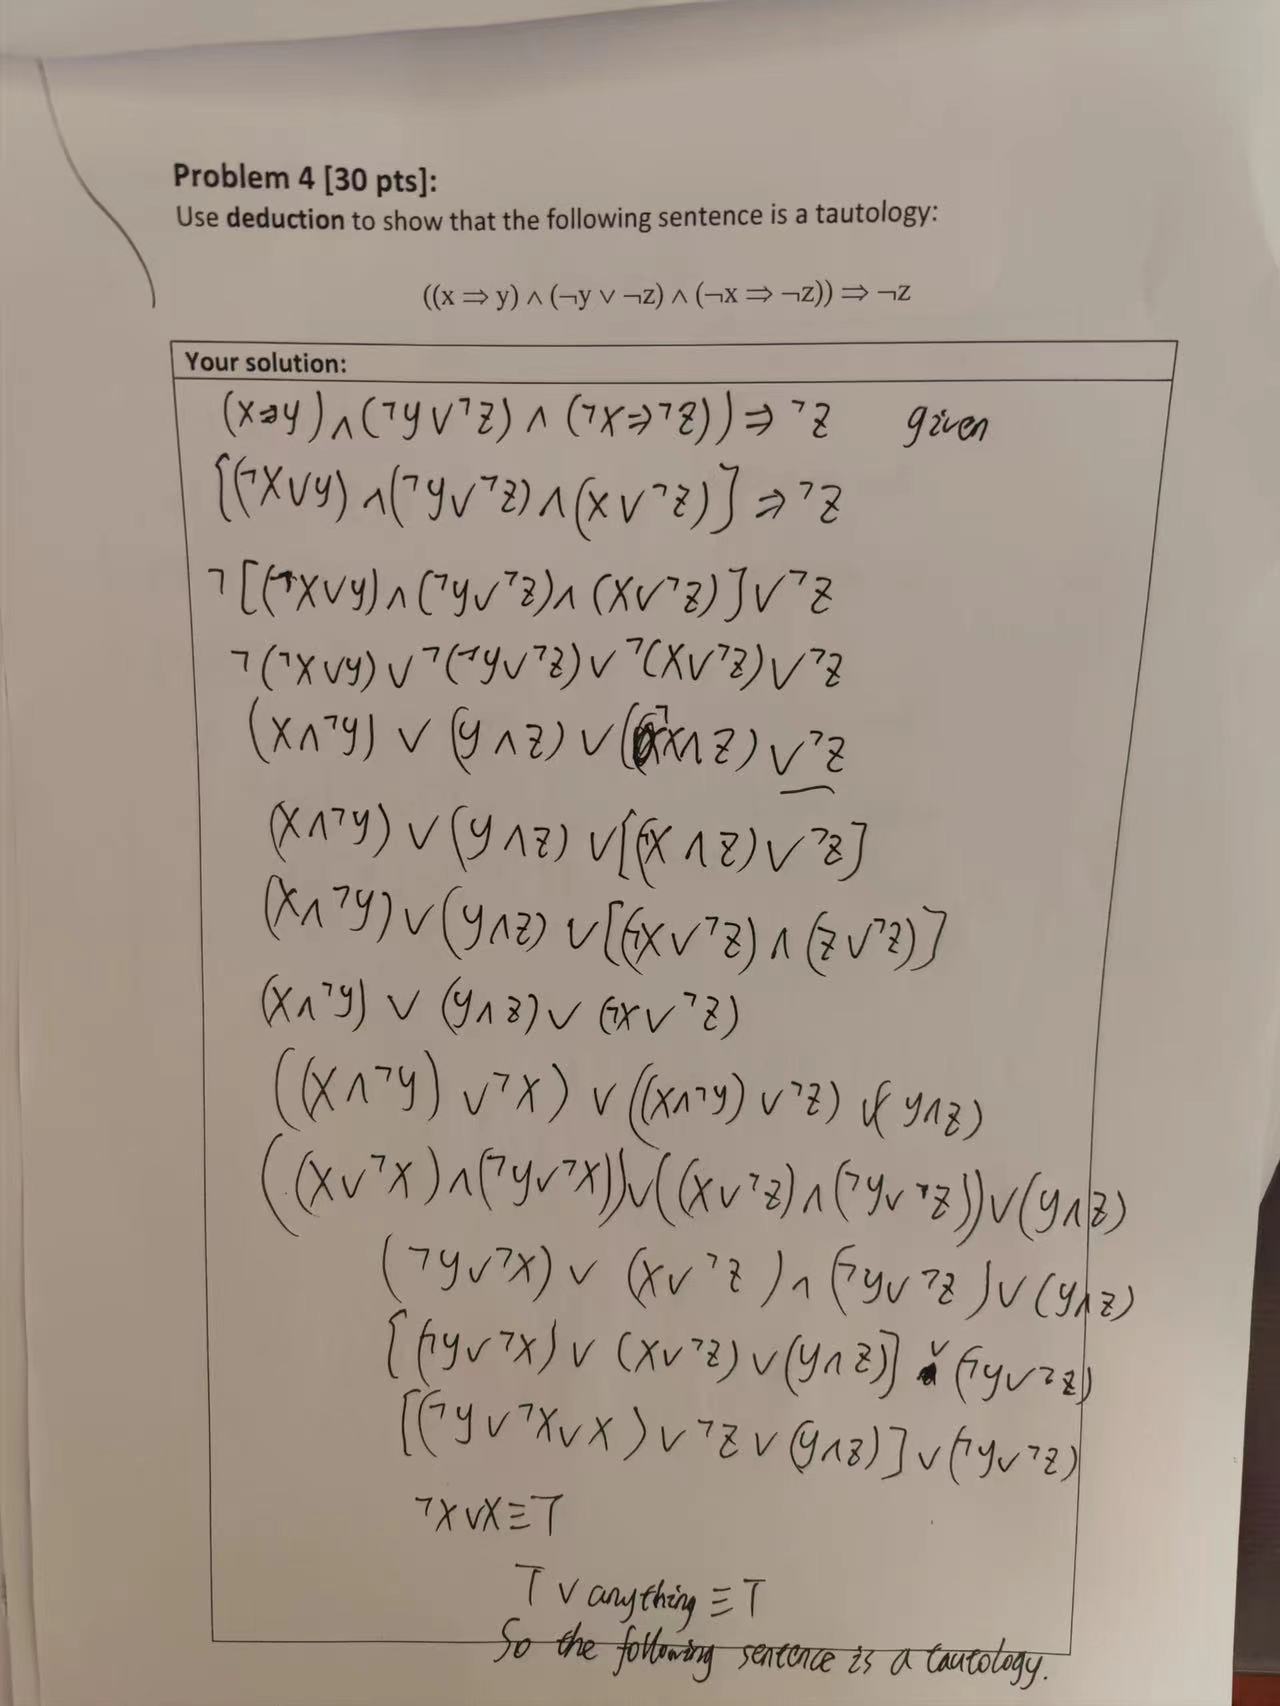 Problem 4 [30 pts]:
Use deduction to show that the following sentence is a tautology:
((x ⇒ y) ∧ (¬y ∨ ¬z) ∧ (¬x ⇒ ¬z)) ⇒ ¬z
Your solution:
(x⇒y)∧(¬y∨¬z)∧(¬x⇒¬z))⇒¬z given
[(¬x∨y)∧(¬y∨¬z)∧(x∨¬z)]⇒¬z
¬[(¬x∨y)∧(¬y∨¬z)∧(x∨¬z)]∨¬z
¬(¬x∨y)∨¬(¬y∨¬z)∨¬(x∨¬z)∨¬z
(x∧¬y)∨(y∧z)∨(¬x∧z)∨¬z
(x∧¬y)∨(y∧z)∨[(¬x∧z)∨¬z]
(x∧¬y)∨(y∧z)∨[(¬x∨¬z)∧(z∨¬z)]
(x∧¬y)∨(y∧z)∨(¬x∨¬z)
((x∧¬y)∨¬x)∨((x∧¬y)∨¬z)∨(y∧z)
((x∨¬x)∧(¬y∨¬x))∨((x∨¬z)∧(¬y∨¬z))∨(y∧z)
(¬y∨¬x)∨(x∨¬z)∧(¬y∨¬z)∨(y∧z)
[(¬y∨¬x)∨(x∨¬z)∨(y∧z)]∨(¬y∨¬z)
[(¬y∨¬x∨x)∨¬z∨(y∧z)]∨(¬y∨¬z)
¬x∨x≡T
T∨anything≡T
So the following sentence is a tautology.